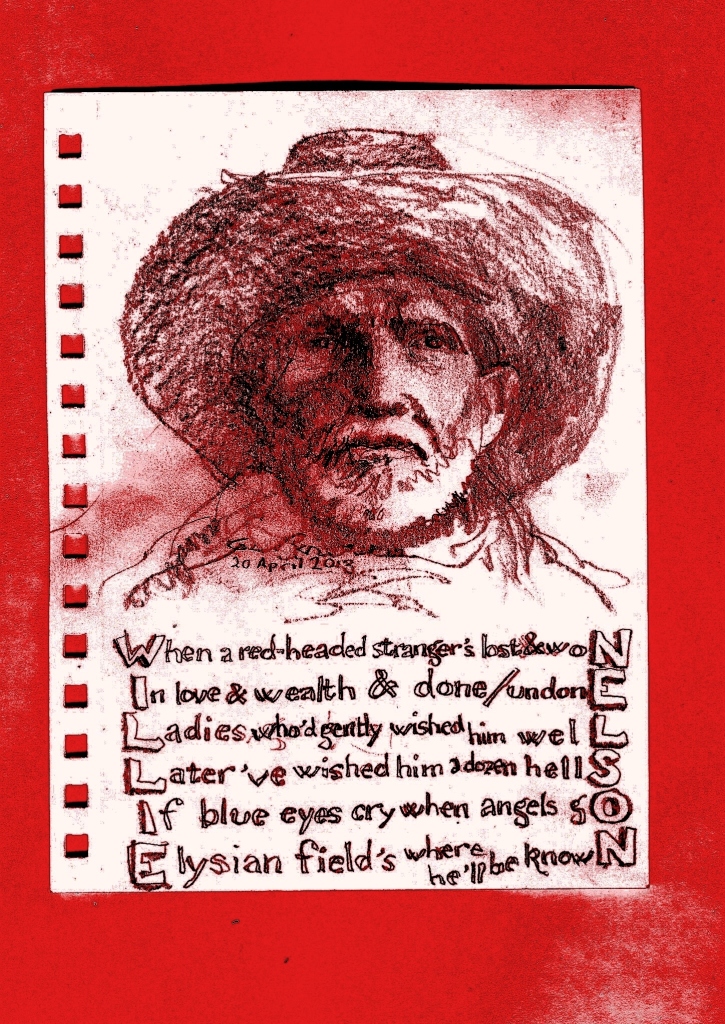 20 April 2013
When a red-headed stranger's lost & woN
In love & wealth & done/undonE
Ladies who'd gently wished him welL
Later 've wished him a dozen hellS
If blue eyes cry when angels gO
Elysian field's where he'll be knowN